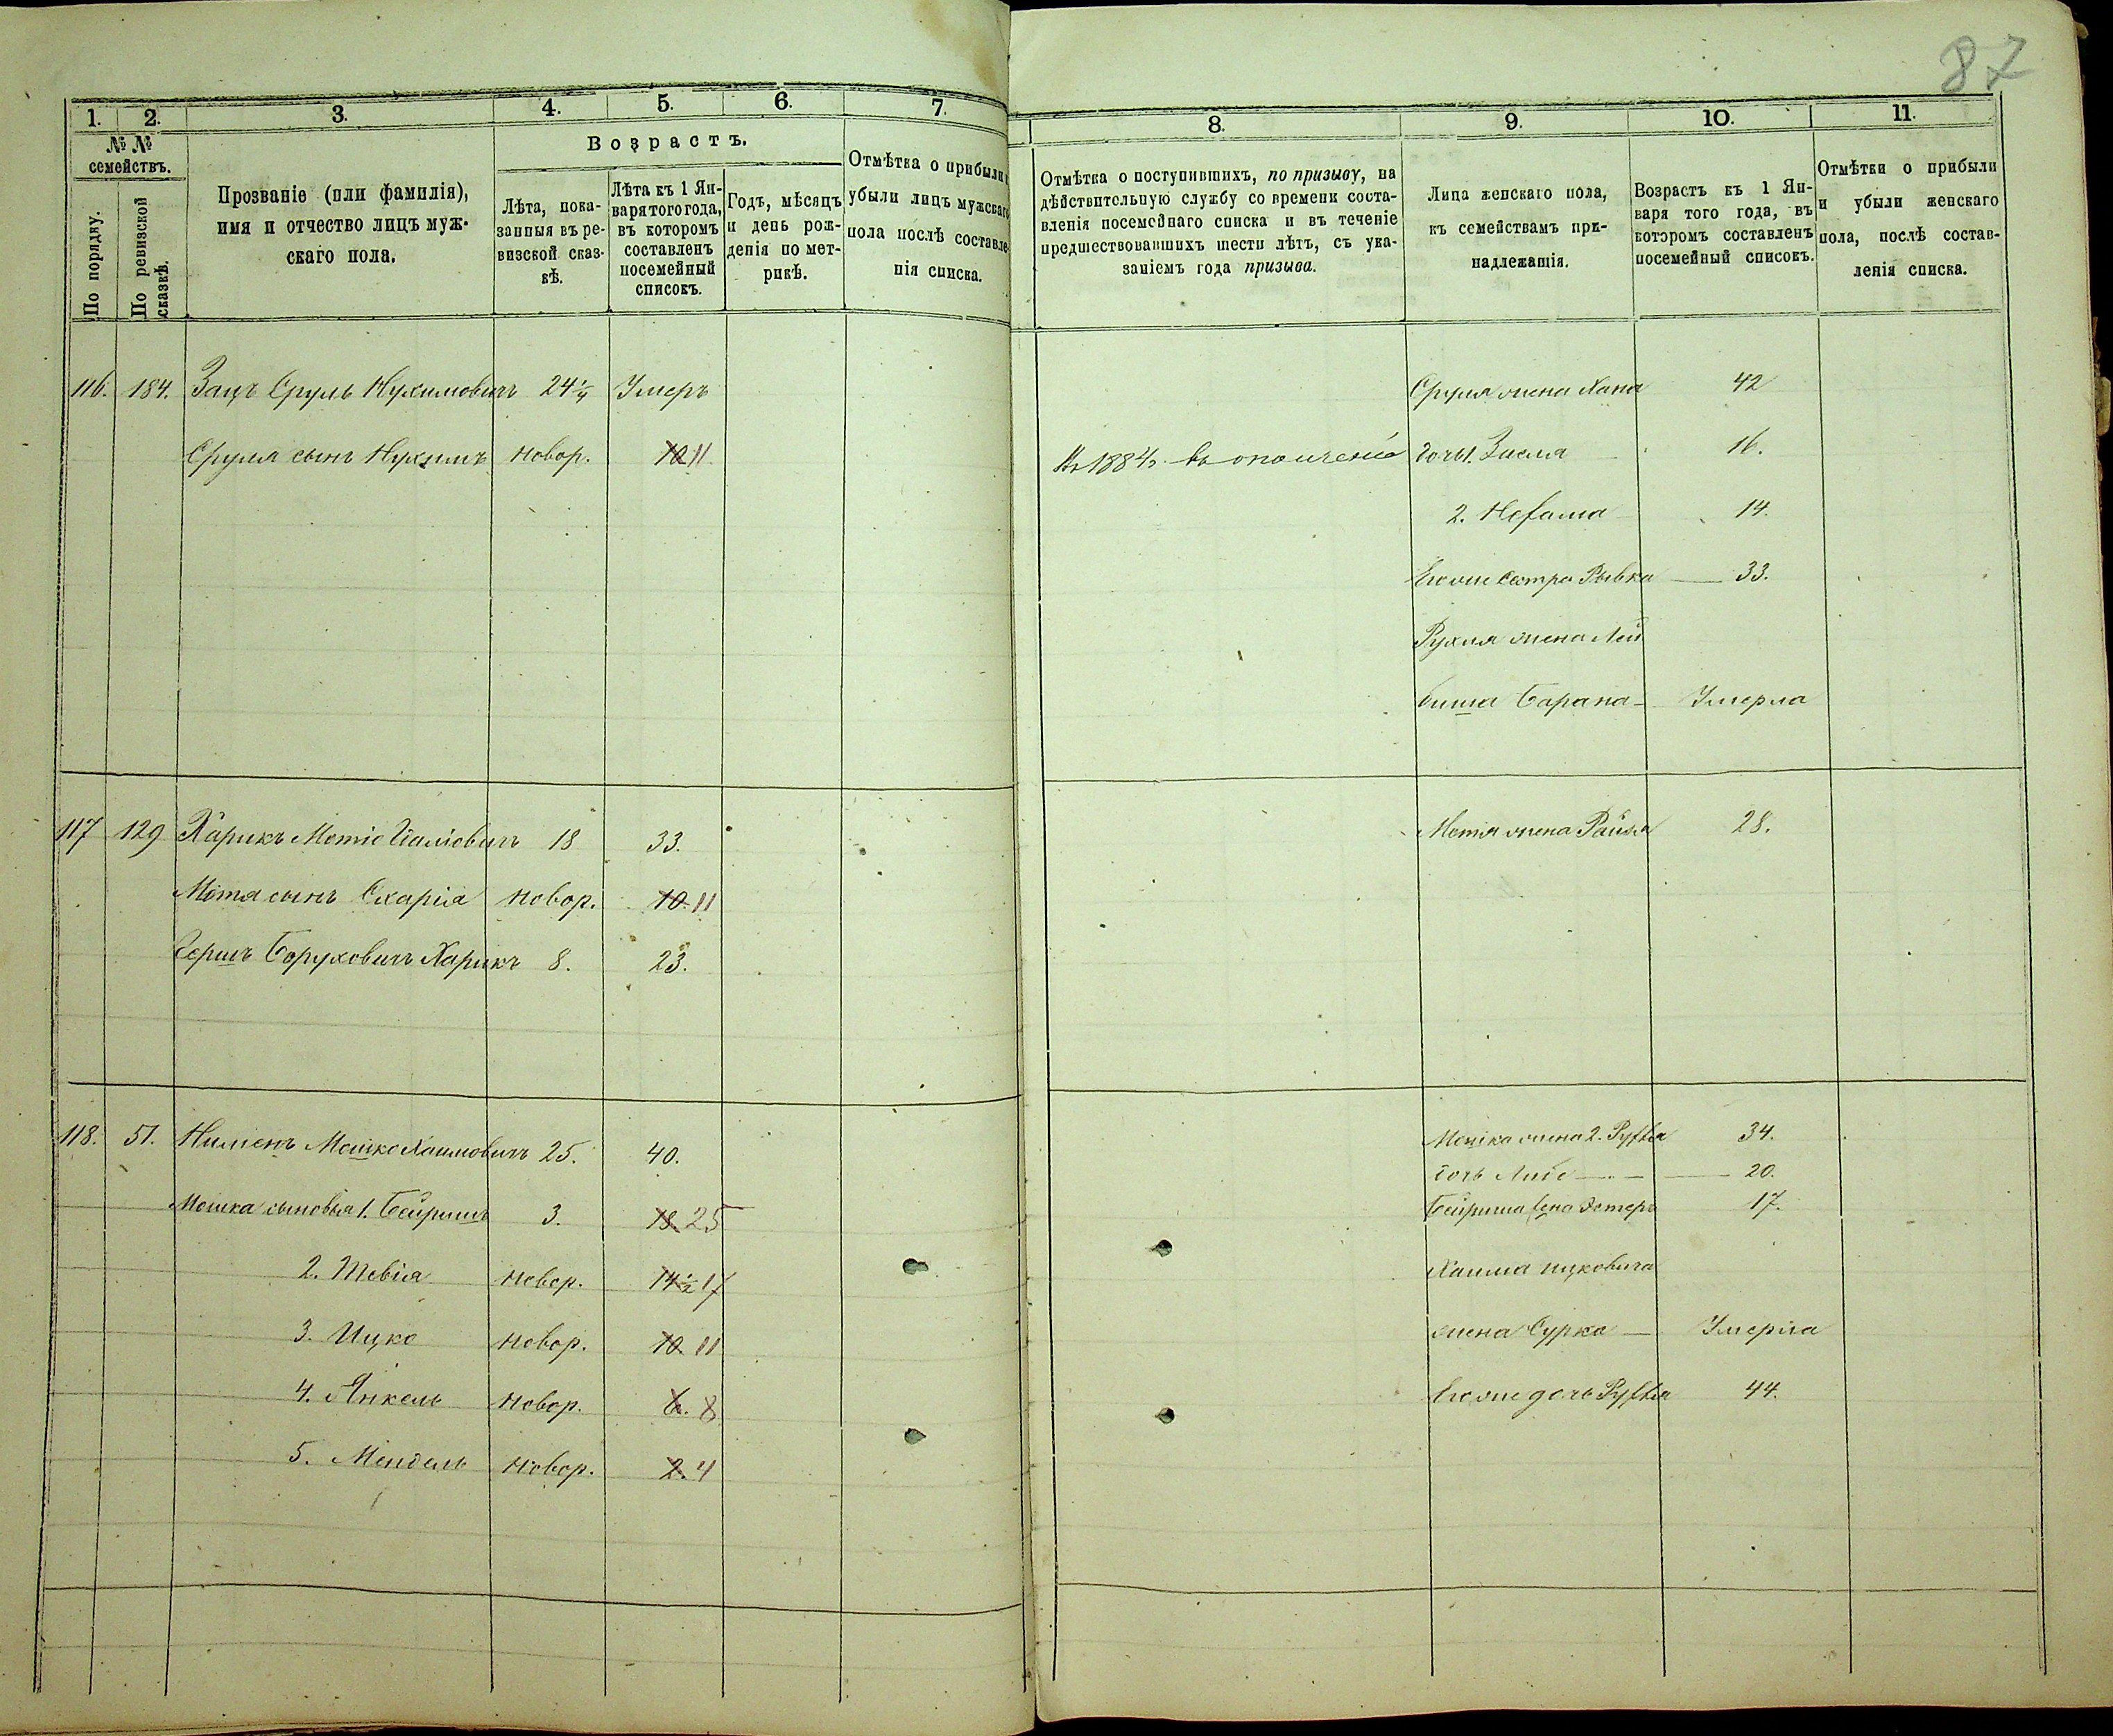 87
1. 2. 3. 4. 5. 6. 7.
№ №
семействъ.
По порядку.
По ревизской сказкѣ.
Прозваніе (или фамилія),
имя и отчество лицъ муж-
скаго пола.
Возрастъ.
Лѣта, пока-
занныя въ ре-
визской сказ-
кѣ.
Лѣта къ 1 Ян-
варя того года,
въ которомъ
составленъ
посемейный
списокъ.
Годъ, мѣсяцъ
и день рож-
денія по мет-
рикѣ.
Отмѣтка о прибыли и
убыли лицъ мужскаго
пола послѣ составле-
нія списка.
116. 184. Зацъ Сруль Нухимовичъ 24 1/4 Умеръ
Сруля сынъ Нухимъ новор. 10 11
117 129 Харикъ Мотіо 18 33.
Мотя сынъ Схарія новор. 10 11
Гершъ Боруховичъ Харикъ 8. 23.
118. 51. Нименъ Мошко Хаимовичъ 25. 40.
Мошка сыновья 1. Бейришъ 3. 18. 25
2. Тевія новор. 14 1/2 17
3. Ицко новор. 10 11
4. Янкель новор. 6. 8
5. Мендель новор. 2. 4
8. 9. 10. 11.
Отмѣтка о поступившихъ, по призыву, на
дѣйствительную службу со времени соста-
вленія посемейнаго списка и въ теченіе
предшествовавшихъ шести лѣтъ, съ ука-
заніемъ года призыва.
Лица женскаго пола,
къ семействамъ при-
надлежащія.
Возрастъ къ 1 Ян-
варя того года, въ
которомъ составленъ
посемейный списокъ.
Отмѣтки о прибыли
и убыли женскаго
пола, послѣ состав-
ленія списка.
Сруля жена Хана 42
въ ополченіе дочь 1. Зисля 16.
2. Нехама 14.
Его же сестра Рывка 33.
Рухля жена Лей
биша Барана Умерла
Мотя жена Райзя 28.
Мошка жена 2. Рухля 34.
дочь Либе 20.
Бейриша жена Эстеръ 17.
Хаима Ицковича
жена Сурка Умерла
Его же дочь Рухля 44.